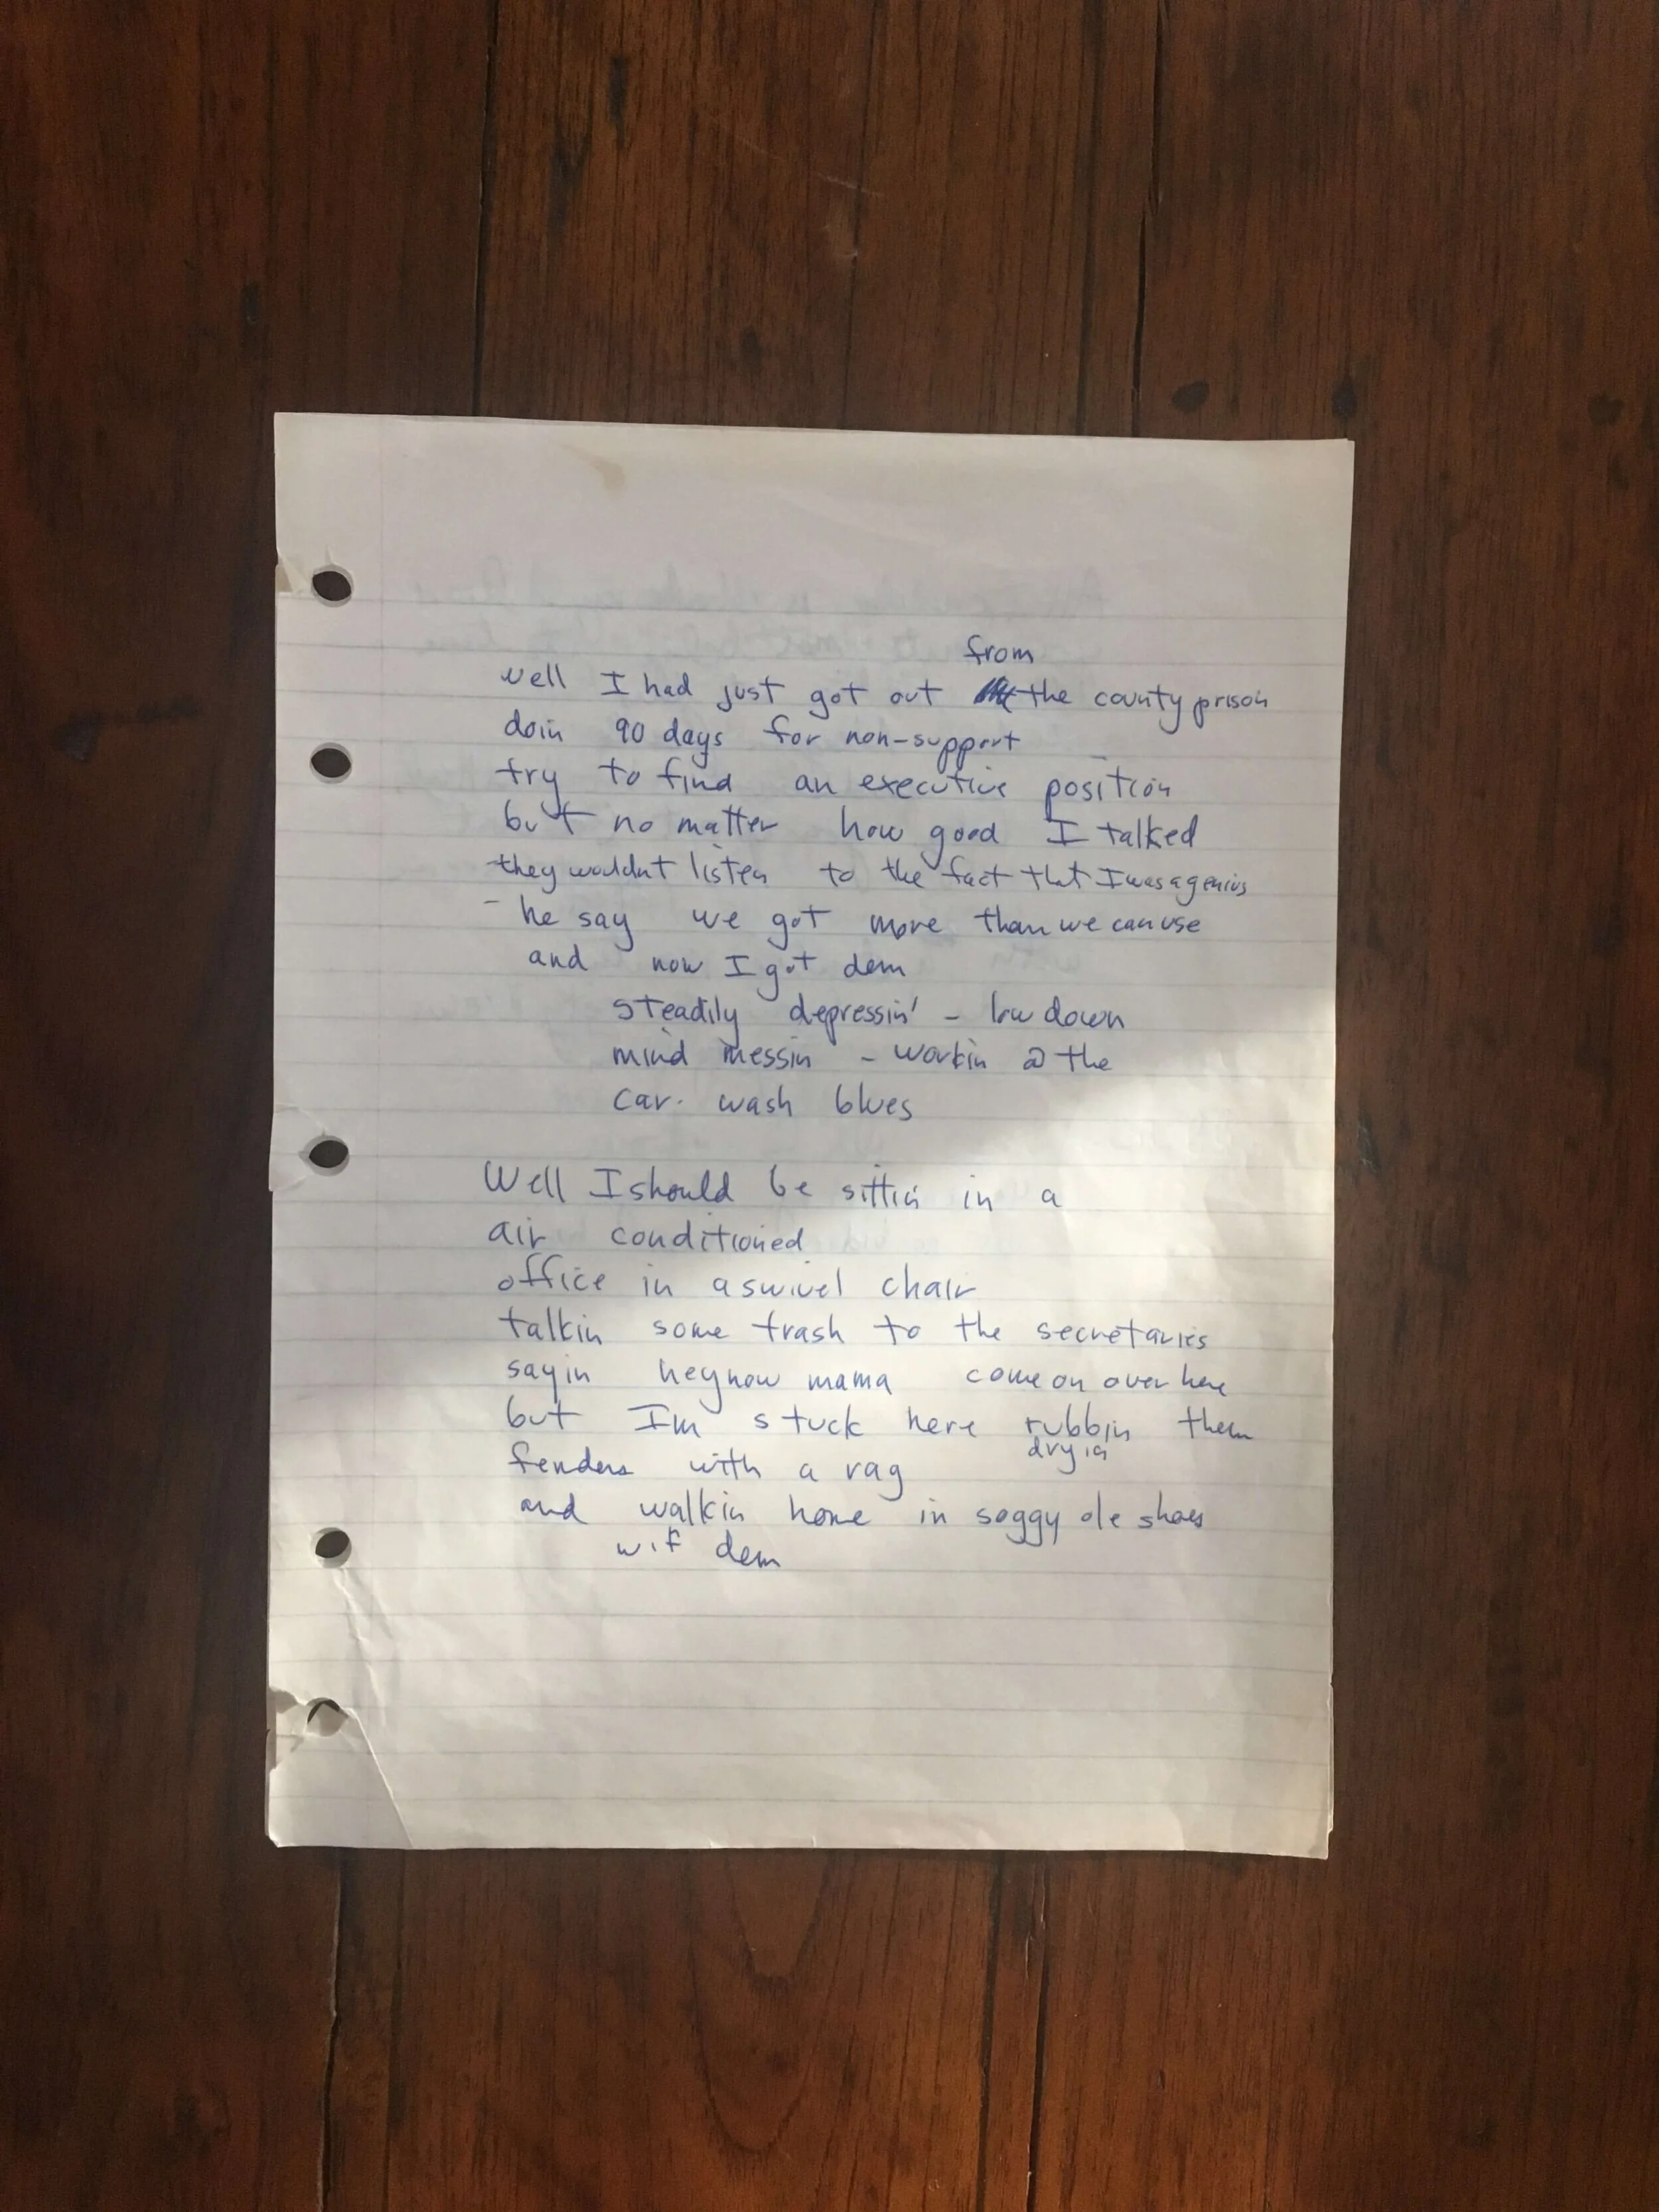 from
well I had just got out the county prison
doin 90 days for non-support
try to find an executive position
but no matter how good I talked
they wouldnt listen to the fact that I was a genius
- he say we got more than we can use
and now I got dem
steadily depressin' - low down
mind messin - workin @ the
car. wash blues
Well I should be sittin in a
air conditioned
office in a swivel chair
talkin some trash to the secretaries
sayin hey now mama come on over here
but Im stuck here rubbin them
dryin
fenders with a rag
and walkin home in soggy ole shoes
wif dem